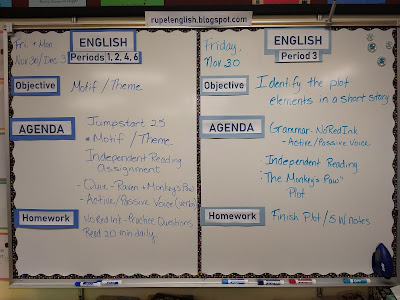 rupelenglish.blogspot.com
Fri + Mon
Nov 30/Dec 3
ENGLISH
Periods 1, 2, 4, 6
Objective
Motif / Theme
AGENDA
Jumpstart 25
* Motif / Theme
Independent Reading
Assignment
- Quiz - Raven + Monkey's Paw
- Active/Passive Voice (verbs)
Homework
NoRedInk - Practice Questions
Read 20 min daily.
Friday,
Nov 30
ENGLISH
Period 3
Objective
Identify the plot
elements in a short story
AGENDA
Grammar - NoRedInk
- Active/Passive Voice
Independent Reading
"The Monkey's Paw"
Plot
Homework
Finish Plot / 5 W notes